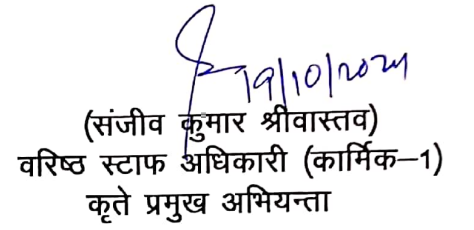 19/10/2021
(संजीव कुमार श्रीवास्तव)
वरिष्ठ स्टाफ अधिकारी (कार्मिक–1)
कृते प्रमुख अभियन्ता